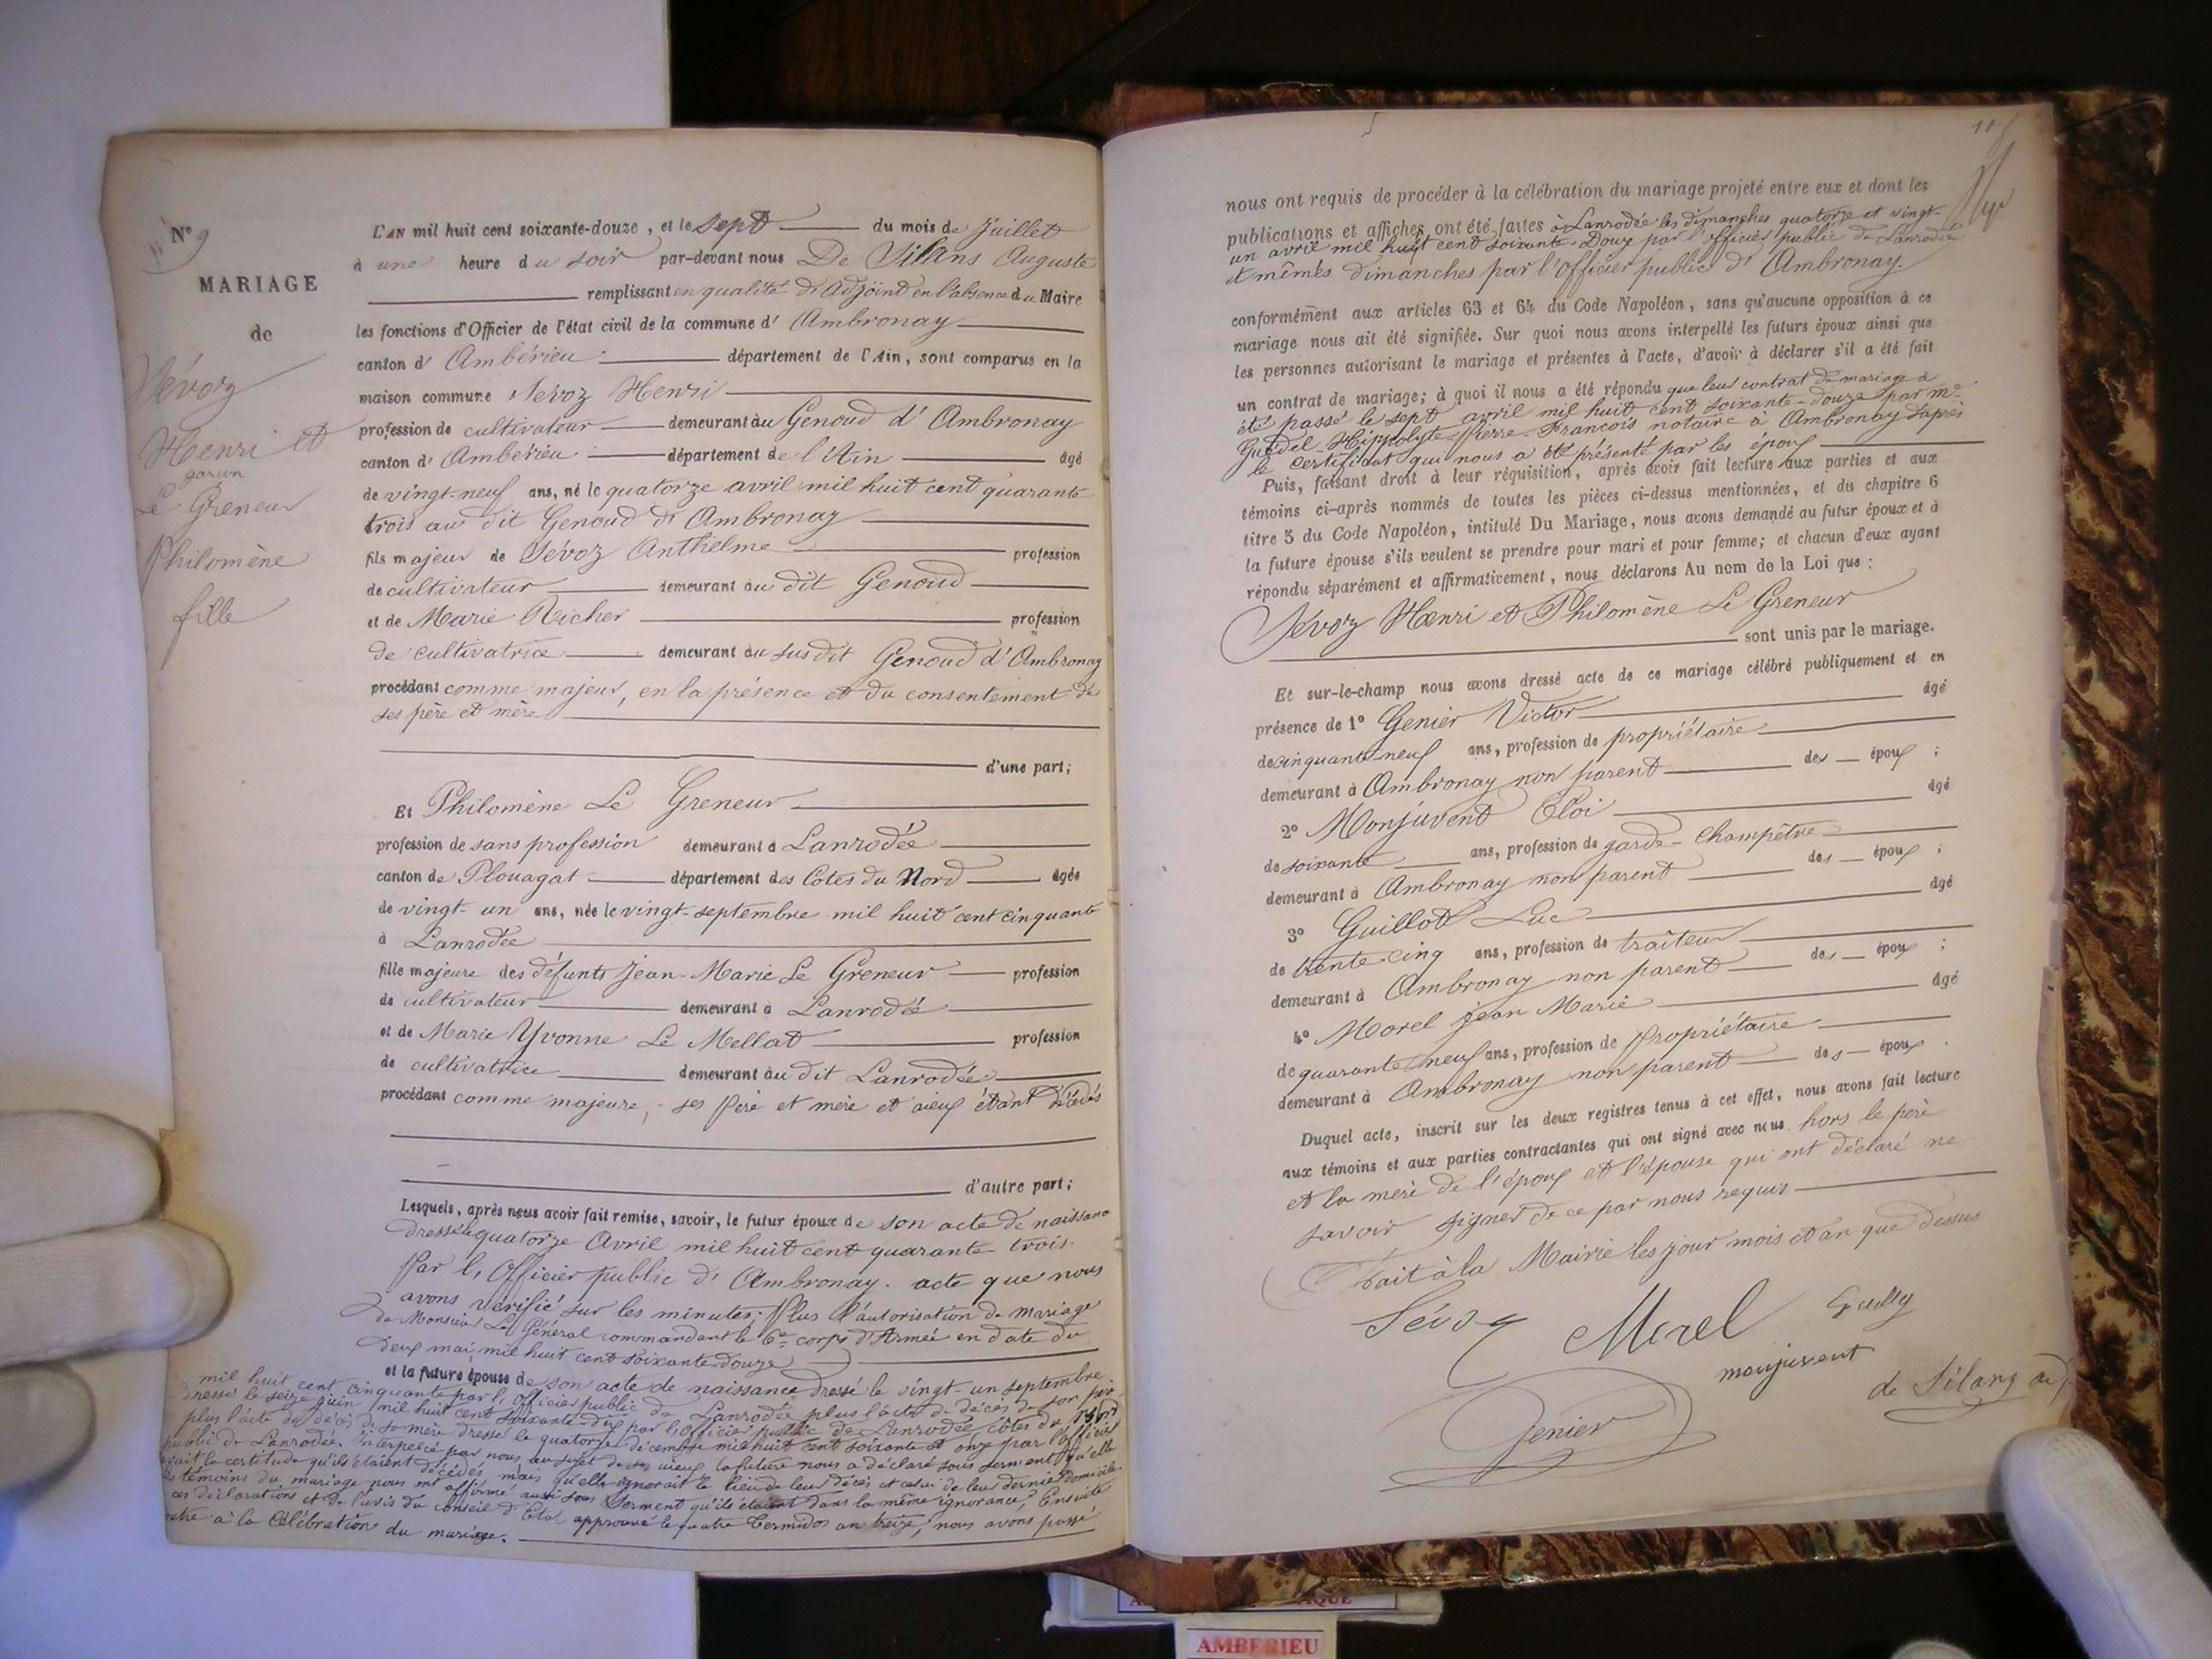 N° 9
MARIAGE
de
Sévoz
Henri et
garçon
Le Greneur
Philomène
fille
L'AN mil huit cent soixante-douze, et le sept du mois de Juillet
à une heure du soir par-devant nous De Silans Auguste
remplissant en qualité d'adjoint en l'absence du Maire
les fonctions d'Officier de l'état civil de la commune d'Ambronay
canton d'Ambérieu département de l'Ain, sont comparus en la
maison commune Sévoz Henri
profession de cultivateur demeurant au Genoud d'Ambronay
canton d'Ambérieu département de l'Ain âgé
de vingt-neuf ans, né le quatorze avril mil huit cent quarante
trois au dit Genoud d'Ambronay
fils majeur de Sévoz Anthelme profession
de cultivateur demeurant au dit Genoud
et de Marie Richer profession
de cultivatrice demeurant au susdit Genoud d'Ambronay
procédant comme majeur, en la présence et du consentement de
ses père et mère
d'une part;
Et Philomène Le Greneur
profession de sans profession demeurant à Lanrodée
canton de Plouagat département des Côtes du Nord âgée
de vingt-un ans, née le vingt-septembre mil huit cent cinquante
à Lanrodée
fille majeure des défunts Jean-Marie Le Greneur profession
de cultivateur demeurant à Lanrodée
et de Marie Yvonne Le Mellat profession
de cultivatrice demeurant au dit Lanrodée
procédant comme majeure, ses père et mère et aieux étant décédés
d'autre part;
Lesquels, après nous avoir fait remise, savoir, le futur époux de son acte de naissance
dressé le quatorze Avril mil huit cent quarante-trois
Par l'Officier public d'Ambronay. acte que nous
avons vérifié sur les minutes; Plus l'autorisation de mariage
de Monsieur Le Général commandant le 6e corps d'Armée en date du
deux mai mil huit cent soixante-douze
et la future épouse de son acte de naissance dressé le vingt-un septembre
mil huit cent cinquante par l'officier public de Lanrodée plus l'acte de décès de son père
dressé le seize juin mil huit cent soixante-dix par l'Officier public de Lanrodée, côtes du Nord
plus l'acte de décès de sa mère dressé le quatorze décembre mil huit cent soixante et onze par l'officier
public de Lanrodée. Interpelée par nous au sujet de ses aieux la future nous a déclaré sous serment qu'elle
avait la certitude qu'ils étaient décédés mais qu'elle ignorait le lieu de leur décès et celui de leur dernier domicile
les témoins du mariage nous ont affirmé aussi sous serment qu'ils étaient dans la même ignorance, Ensuite
ces déclarations et de l'avis du conseil d'Etat approuvé le quatre Termidor an treize, nous avons passé
outre à la célébration du mariage.
nous ont requis de procéder à la célébration du mariage projeté entre eux et dont les
publications et affiches ont été faites à Lanrodée les dimanches quatorze et vingt-
un avril mil huit cent soixante-Douze par l'officier public de Lanrodée
et mêmes dimanches par l'Officier public d'Ambronay.
conformément aux articles 63 et 64 du Code Napoléon, sans qu'aucune opposition à ce
mariage nous ait été signifiée. Sur quoi nous avons interpellé les futurs époux ainsi que
les personnes autorisant le mariage et présentes à l'acte, d'avoir à déclarer s'il a été fait
un contrat de mariage; à quoi il nous a été répondu que leur contrat de mariage a
été passé le sept avril mil huit cent soixante-douze par Me
Hippolyte-Pierre-François notaire à Ambronay d'après
le certificat qui nous a été présenté par les époux
Puis, faisant droit à leur réquisition, après avoir fait lecture aux parties et aux
témoins ci-après nommés de toutes les pièces ci-dessus mentionnées, et du chapitre 6
titre 5 du Code Napoléon, intitulé Du Mariage, nous avons demandé au futur époux et à
la future épouse s'ils veulent se prendre pour mari et pour femme; et chacun d'eux ayant
répondu séparément et affirmativement, nous déclarons Au nom de la Loi que :
Sévoz Henri et Philomène Le Greneur
sont unis par le mariage.
Et sur-le-champ nous avons dressé acte de ce mariage célébré publiquement et en
présence de 1° Genier Victor âgé
de cinquante-neuf ans, profession de propriétaire
demeurant à Ambronay non parent des époux ;
2° Monjuvent Eloi âgé
de soixante ans, profession de garde-champêtre
demeurant à Ambronay non parent des époux ;
3° Guillot Luc âgé
de trente-cinq ans, profession de traiteur
demeurant à Ambronay non parent des époux ;
4° Morel Jean Marie âgé
de quarante neuf ans, profession de propriétaire
demeurant à Ambronay non parent des époux .
Duquel acte, inscrit sur les deux registres tenus à cet effet, nous avons fait lecture
aux témoins et aux parties contractantes qui ont signé avec nous hors le père
et la mère de l'époux et l'épouse qui ont déclaré ne
savoir signer de ce par nous requis
Fait à la Mairie les jour mois et an que dessus
Sévoz Morel
monjuvent
de Silans adj
Genier
AMBERIEU